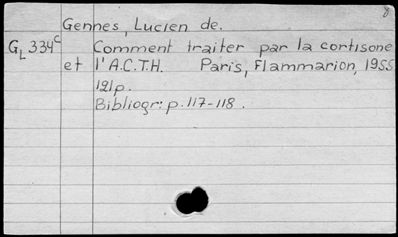 8
Gennes, Lucien de.
GL 334c Comment traiter par la cortisone
et l'A.C.T.H. Paris, Flammarion, 1955
121p.
Bibliogr: p. 117-118.